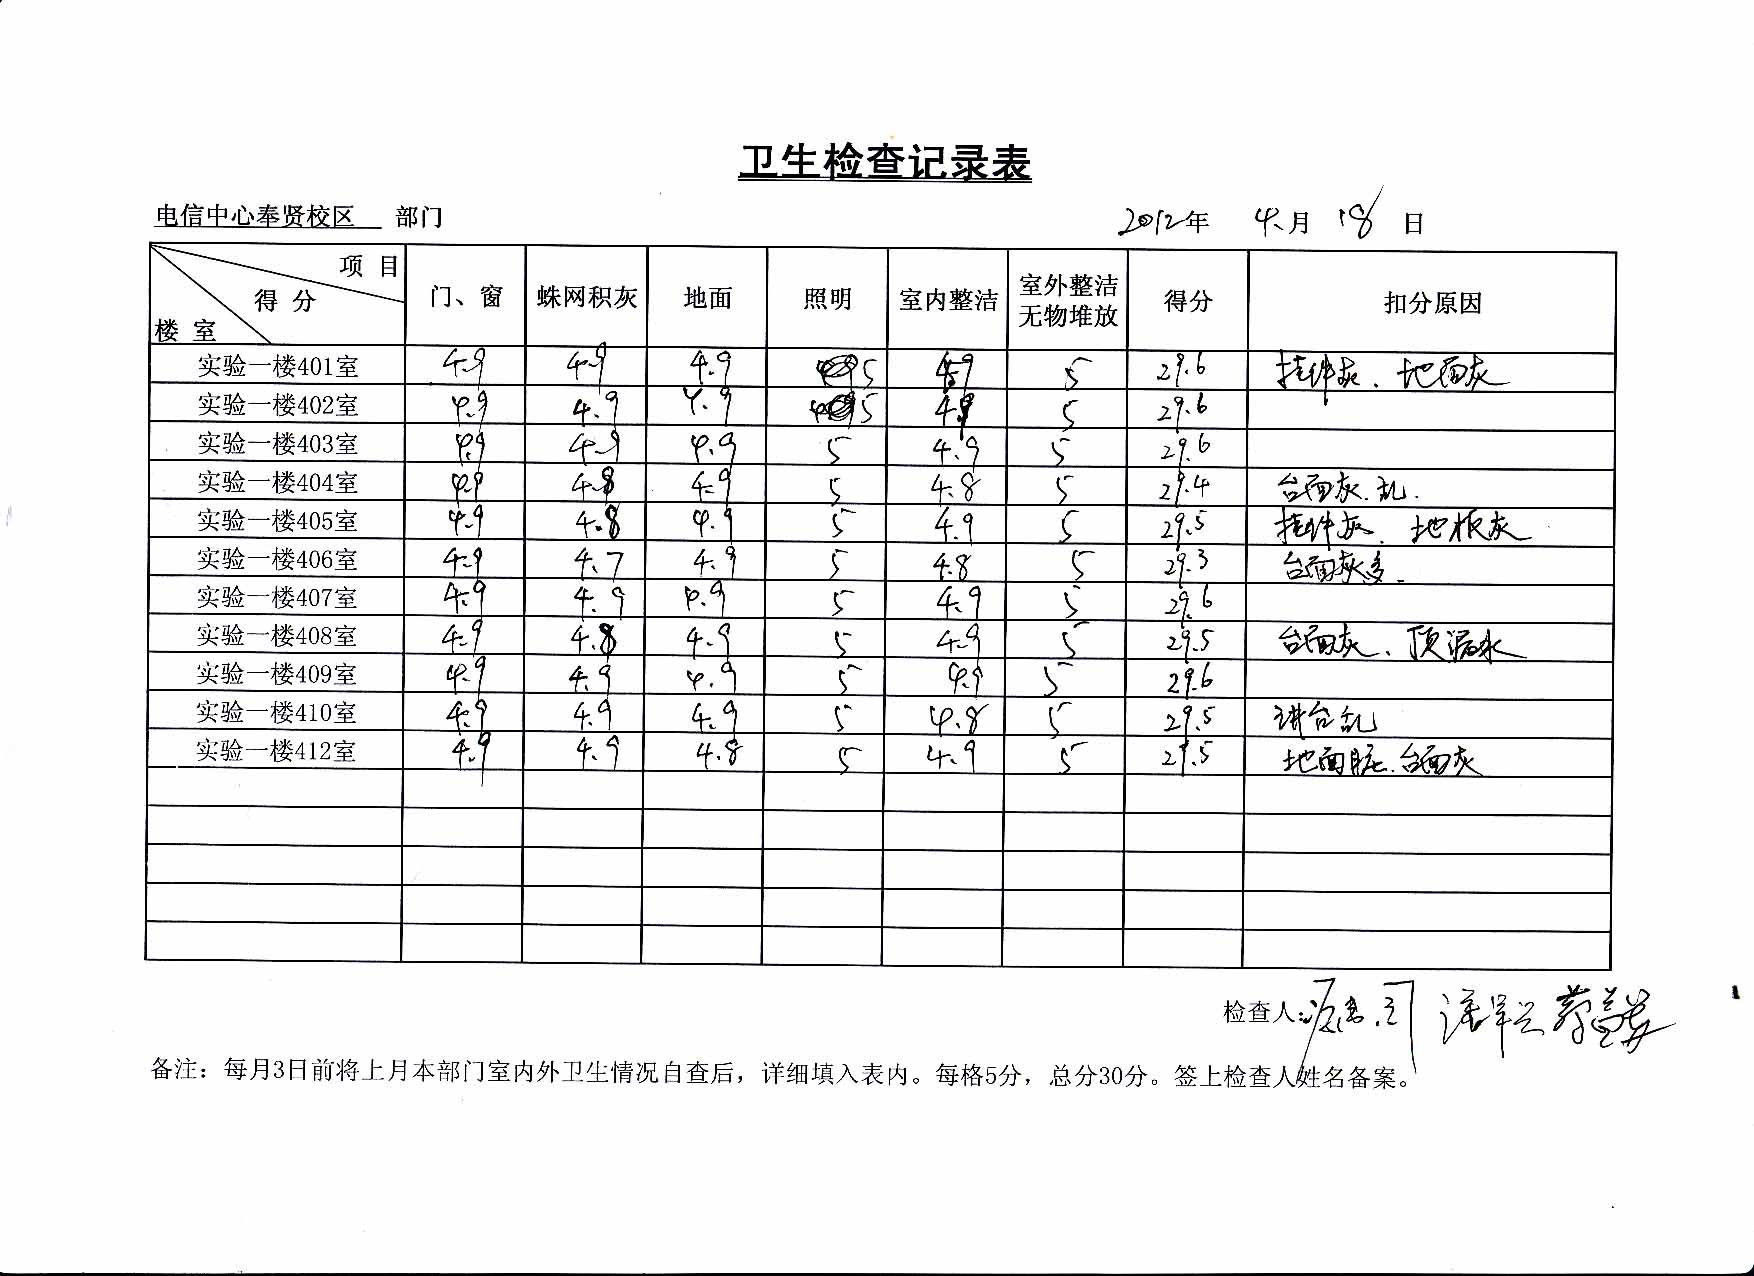 卫生检查记录表
电信中心奉贤校区 部门 2012年 4月 18日
项 目 得 分 楼 室 门、窗 蛛网积灰 地面 照明 室内整洁 室外整洁无物堆放 得分 扣分原因
实验一楼401室 4.9 4.9 4.9 5 4.9 5 29.6 挂件灰、地面灰
实验一楼402室 4.9 4.9 4.9 5 4.9 5 29.6
实验一楼403室 4.9 4.9 4.9 5 4.9 5 29.6
实验一楼404室 4.9 4.8 4.9 5 4.8 5 29.4 台面灰.乱.
实验一楼405室 4.9 4.8 4.9 5 4.9 5 29.5 挂件灰、地板灰
实验一楼406室 4.9 4.7 4.9 5 4.8 5 29.3 台面灰多.
实验一楼407室 4.9 4.9 4.9 5 4.9 5 29.6
实验一楼408室 4.9 4.8 4.9 5 4.9 5 29.5 台面灰、顶漏水
实验一楼409室 4.9 4.9 4.9 5 4.9 5 29.6
实验一楼410室 4.9 4.9 4.9 5 4.8 5 29.5 讲台乱
实验一楼412室 4.9 4.9 4.8 5 4.9 5 29.5 地面脏.台面灰
检查人:
备注：每月3日前将上月本部门室内外卫生情况自查后，详细填入表内。每格5分，总分30分。签上检查人姓名备案。